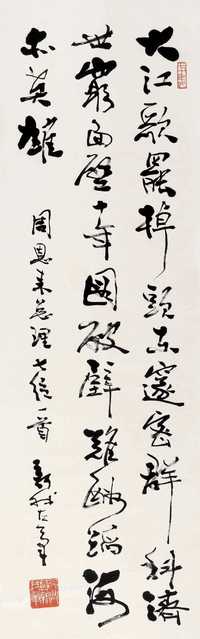 大江歌罢掉头东邃密群科济
世穷面壁十年图破壁难酬蹈海
亦英雄
周恩来总理七绝一首